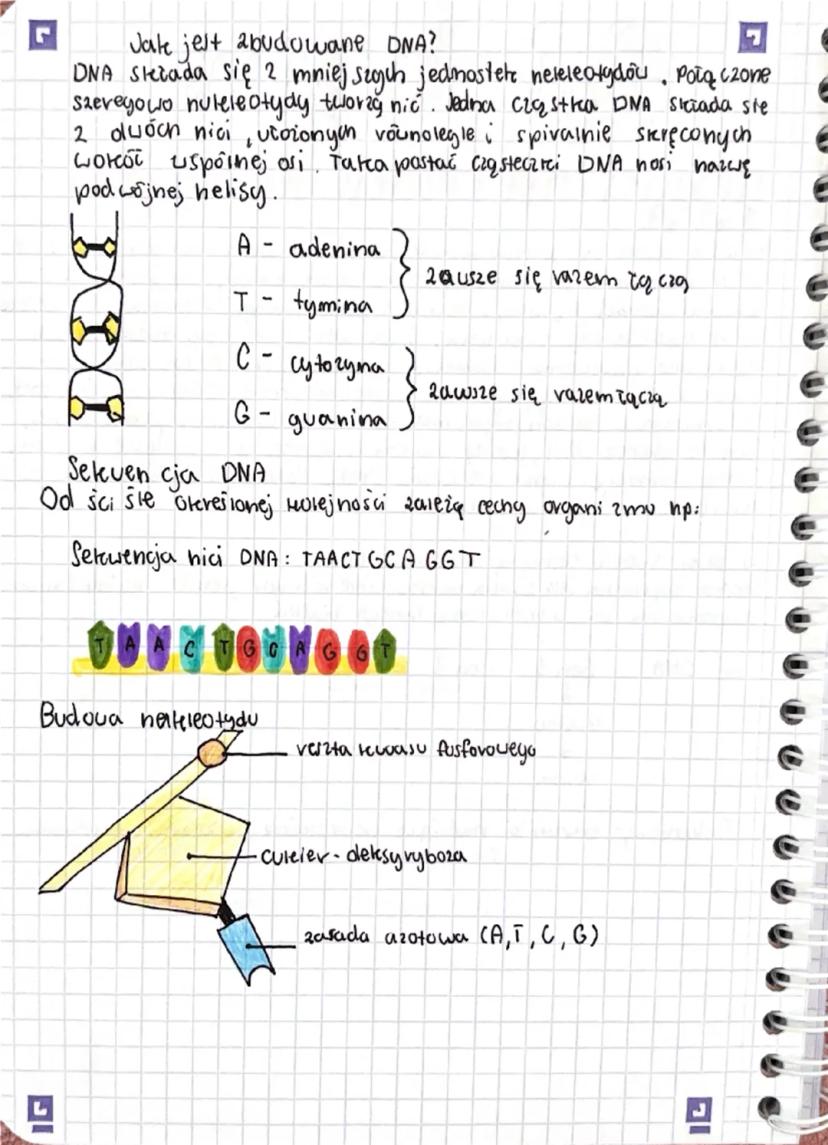 Jak jest zbudowane DNA?
DNA składa się z mniejszych jednostek nukleotydów. Połączone
szeregowo nukleotydy tworzą nić. Jedna cząstka DNA składa się
z dwóch nici, ułożonych równolegle i spiralnie skręconych
wokół wspólnej osi. Taka postać cząsteczki DNA nosi nazwę
podwójnej helisy.
A - adenina
zawsze się razem łączą
T - tymina
C - cytozyna
zawsze się razem łączą
G - guanina
Sekwencja DNA
Od ściśle określonej kolejności zależą cechy organizmu np:
Sekwencja nici DNA: TAACTGCAGGT
T A A C T G C A G G T
Budowa nukleotydu
reszta kwasu fosforowego
cukier - deksyryboza
zasada azotowa (A, T, C, G)